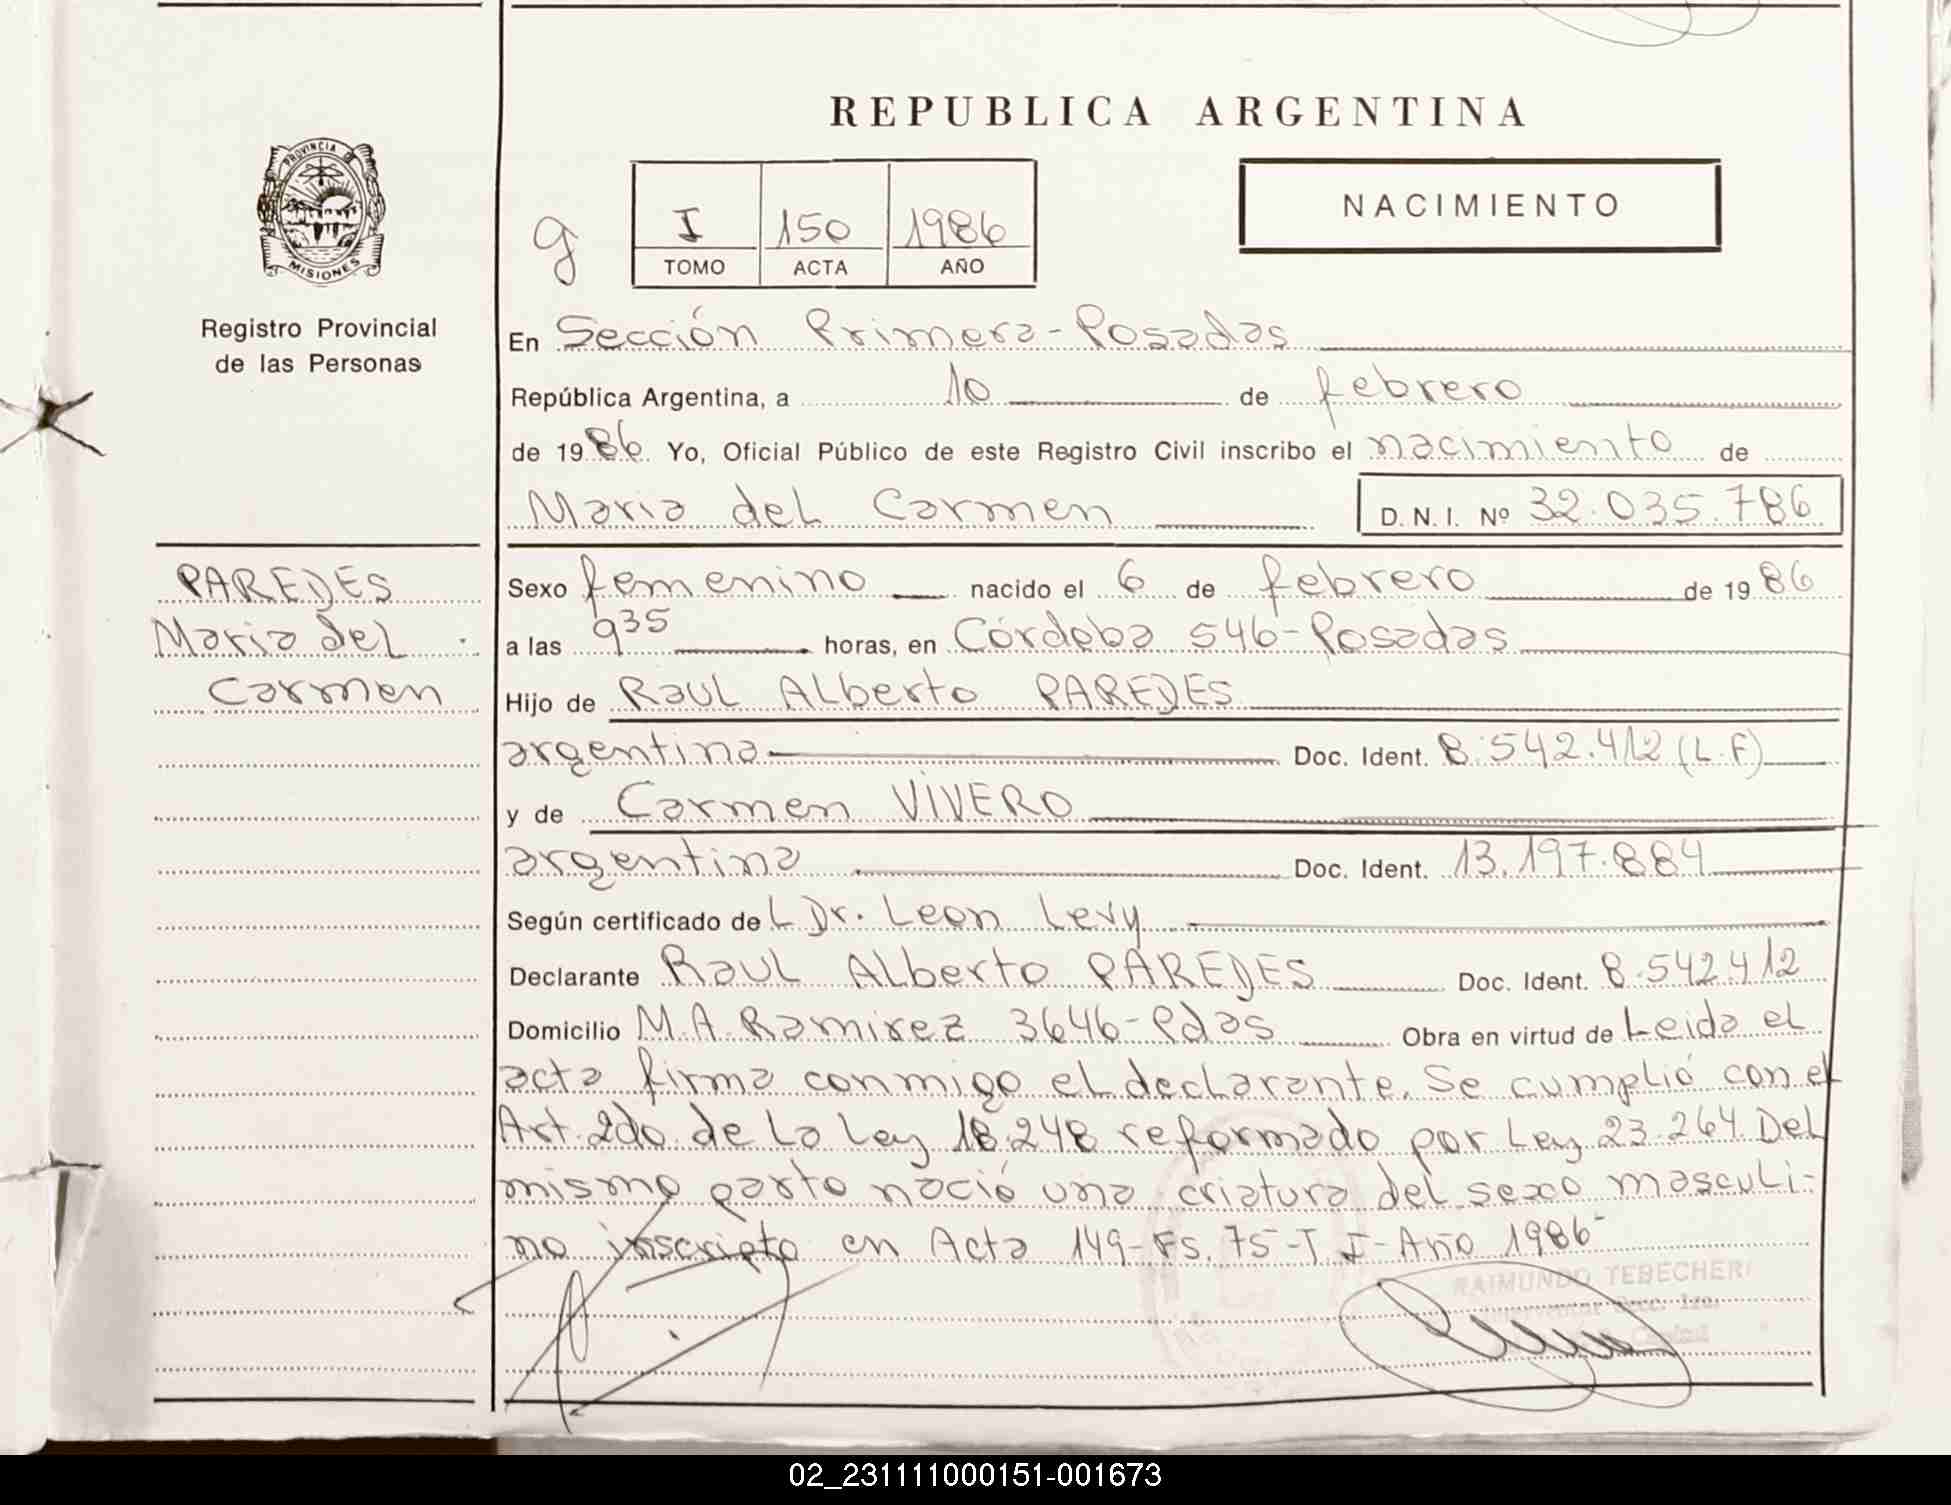 REPUBLICA ARGENTINA
PROVINCIA DE
MISIONES
Registro Provincial
de las Personas
g
I 150 1986
TOMO ACTA AÑO
NACIMIENTO
En Sección Primera-Posadas
República Argentina, a 10 de febrero
de 1986. Yo, Oficial Público de este Registro Civil inscribo el nacimiento de
Maria del Carmen D.N.I. Nº 32.035.786
PAREDES
Maria del
Carmen
Sexo femenino nacido el 6 de febrero de 1986
a las 9 35 horas, en Córdoba 546-Posadas
Hijo de Raul Alberto PAREDES
argentina Doc. Ident. 8.542.412 (L.F)
y de Carmen VIVERO
argentina Doc. Ident. 13.197.884
Según certificado de L Dr. Leon Levy
Declarante Raul Alberto PAREDES Doc. Ident. 8.542.412
Domicilio M.A. Ramirez 3646-Pdas Obra en virtud de Leida el
acta firma conmigo el declarante. Se cumplió con el
Art. 2do de la Ley 18.248 reformado por Ley 23.264. Del
mismo parto nació una criatura del sexo masculi-
no inscripto en Acta 149-Fs. 75-T I-Año 1986-
RAIMUNDO TEBECHERI
Secc. 1ra.
02_231111000151-001673